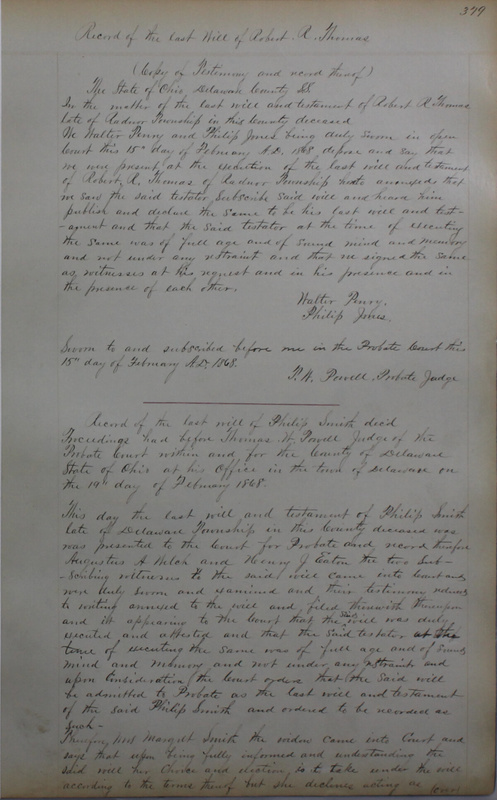 379
Record of the last Will of Robert R. Thomas
(Copy of Testimony and record thereof)
The State of Ohio Delaware County SS.
In the matter of the last will and testament of Robert R Thomas
late of Radnor Township in this County deceased
We Walter Penry and Philip Jones being duly sworn in open
Court this 15th day of February A.D. 1868 depose and say that
we were present at the execution of the last will and testament
of Robert R. Thomas of Radnor Township hereto annexed that
we saw the said testator subscribe said will and heard him
publish and declare the same to be his last will and test-
-ament and that the said testator at the time of executing
the same was of full age and of sound mind and memory
and not under any restraint and that we signed the same
as witnesses at his request and in his presence and in
the presence of each other.
Walter Penry.
Philip Jones.
Sworn to and subscribed before me in the Probate Court this
15th day of February A.D. 1868.
T. W. Powell Probate Judge
Record of the last will of Philip Smith dec'd
Proceedings had before Thomas W. Powell Judge of the
Probate Court within and for the County of Delaware
State of Ohio at his Office in the town of Delaware on
the 19th day of February 1868.
This day the last will and testament of Philip Smith
late of Delaware Township in this County deceased was
was presented to the Court for Probate and record therefore
Augustus A Welch and Henry J Eaton the two Sub-
-scribing witnesses to the said will came into Court and
were duly sworn and examined and their testimony reduced
to writing annexed to the will and filed therewith thereupon
and it appearing to the Court that the said will was duly
executed and attested and that the said testator at the
time of executing the same was of full age and of sound
mind and memory and not under any restraint and
upon consideration the Court orders that the said will
be admitted to Probate as the last will and testament
of the said Philip Smith and ordered to be recorded as
such-
Margaret Smith the widow came into Court and
says that upon being fully informed and understanding the
said will her choice and election is to take under the will
according to the terms thereof but she declines acting as